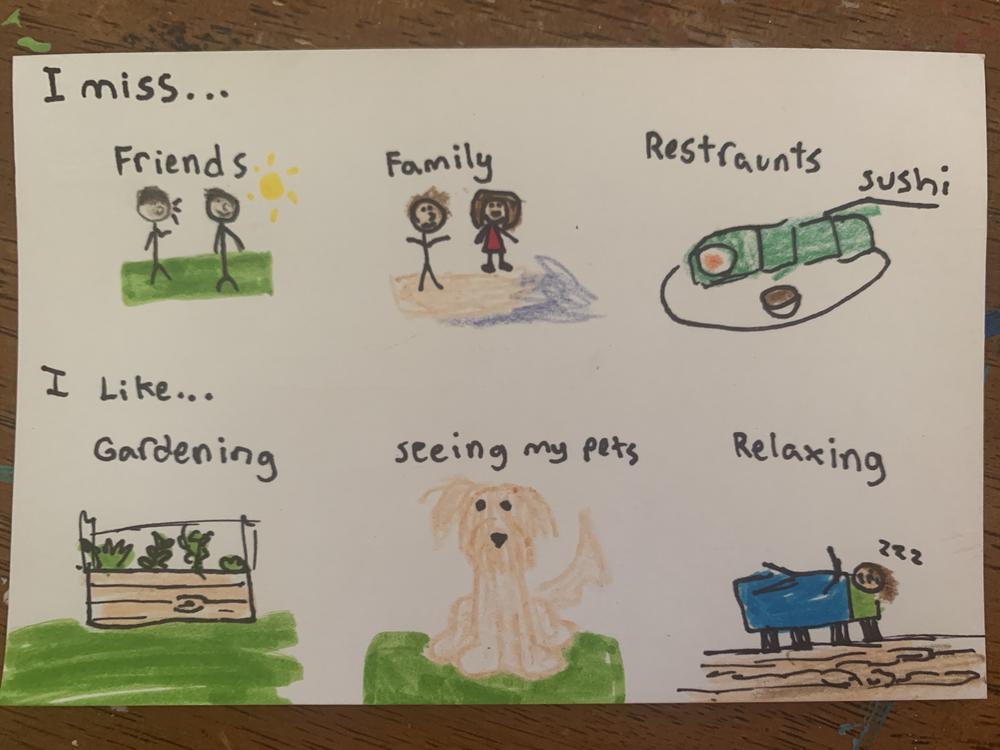 I miss...
Friends
Family
Restraunts
sushi
I Like...
Gardening
seeing my pets
Relaxing
zzz